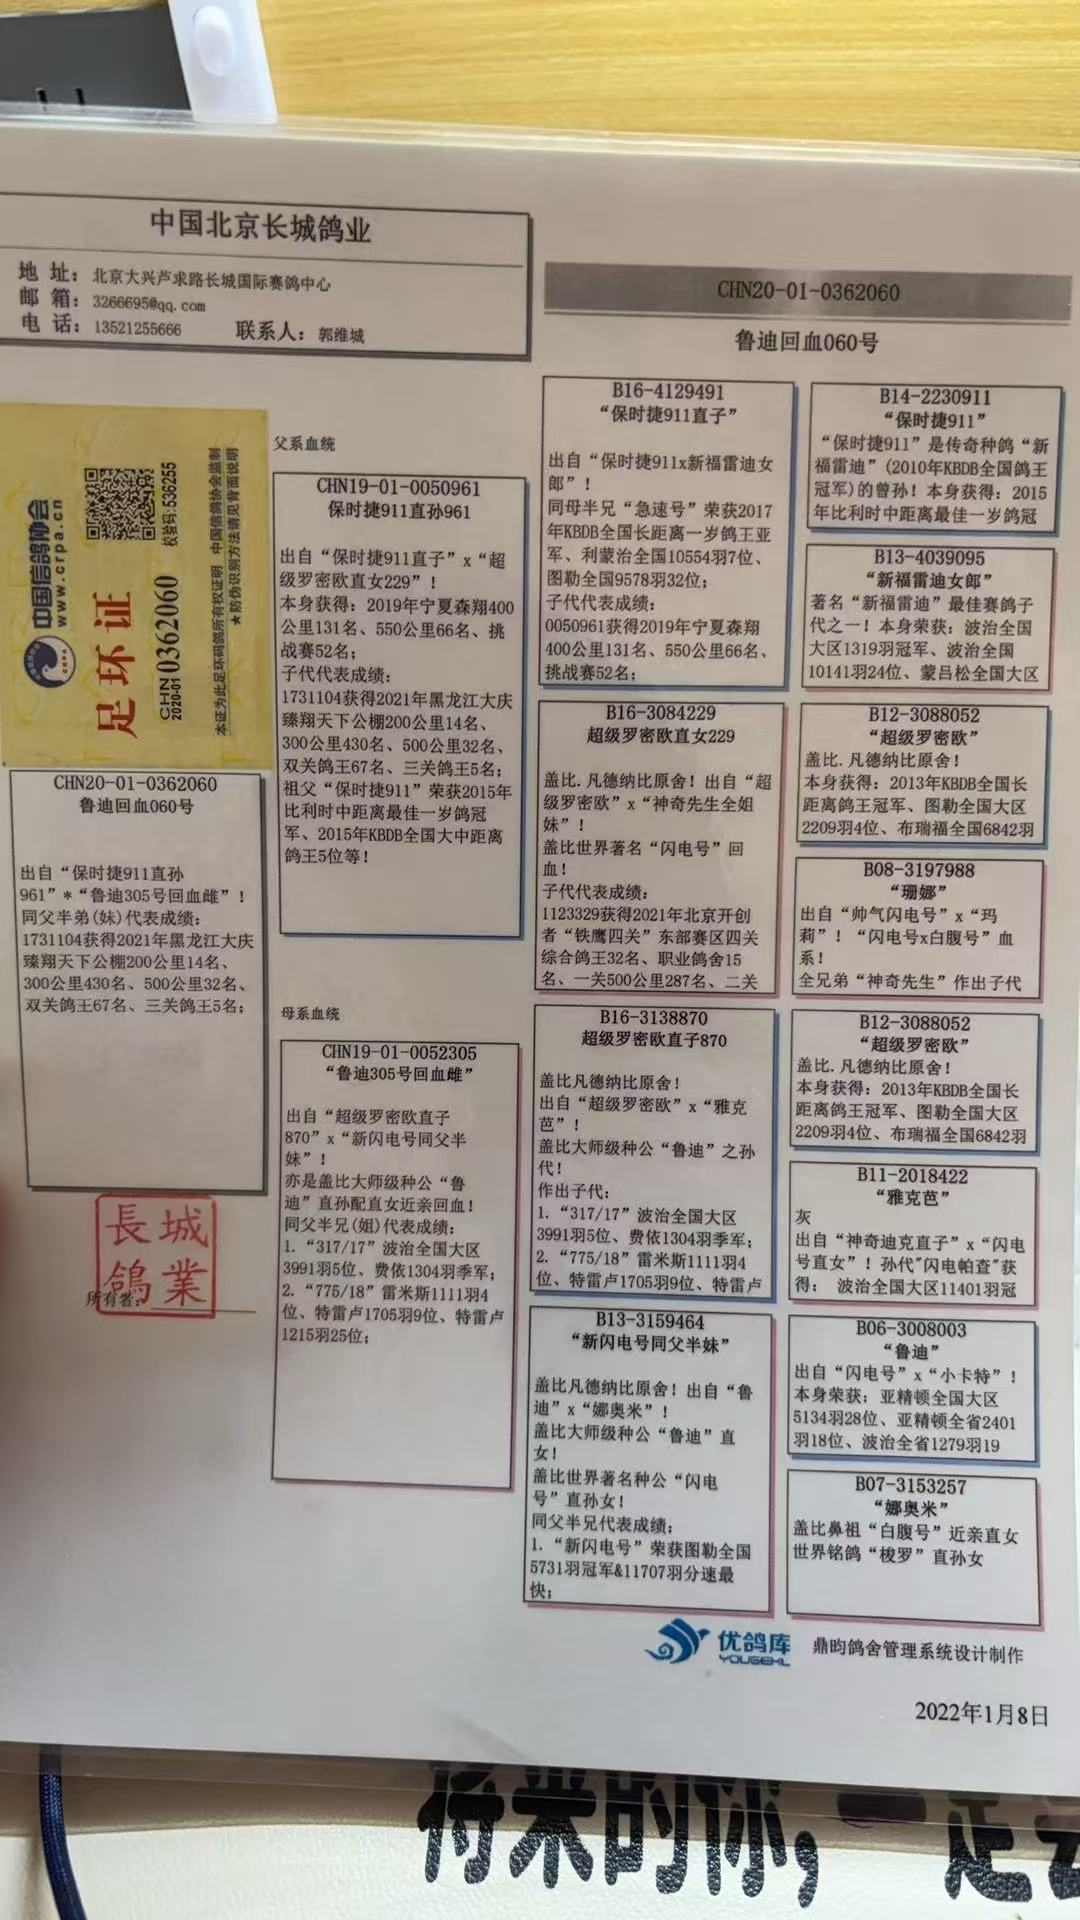 中国北京长城鸽业
地 址：北京大兴芦求路长城国际赛鸽中心
邮 箱：3266695@qq.com
电 话：13521255666 联系人：郭维城
CHN20-01-0362060
鲁迪回血060号
中国信鸽协会
www.crpa.cn
CRPA
足环证
CHN
2020-01 0362060
校验码:536255
本证为此足环码鸽所有权证明 中国信鸽协会监制
★防伪识别方法请见背面说明
CHN20-01-0362060
鲁迪回血060号
出自“保时捷911直孙
961”*“鲁迪305号回血雌”！
同父半弟(妹)代表成绩：
1731104获得2021年黑龙江大庆
臻翔天下公棚200公里14名、
300公里430名、500公里32名、
双关鸽王67名、三关鸽王5名；
長城
鸽業
所有者：
父系血统
CHN19-01-0050961
保时捷911直孙961
出自“保时捷911直子”x“超
级罗密欧直女229”！
本身获得：2019年宁夏森翔400
公里131名、550公里66名、挑
战赛52名；
子代代表成绩：
1731104获得2021年黑龙江大庆
臻翔天下公棚200公里14名、
300公里430名、500公里32名、
双关鸽王67名、三关鸽王5名；
祖父“保时捷911”荣获2015年
比利时中距离最佳一岁鸽冠
军、2015年KBDB全国大中距离
鸽王5位等！
母系血统
CHN19-01-0052305
“鲁迪305号回血雌”
出自“超级罗密欧直子
870”x“新闪电号同父半
妹”！
亦是盖比大师级种公“鲁
迪”直孙配直女近亲回血！
同父半兄(姐)代表成绩：
1. “317/17”波治全国大区
3991羽5位、费依1304羽季军；
2. “775/18”雷米斯1111羽4
位、特雷卢1705羽9位、特雷卢
1215羽25位；
B16-4129491
“保时捷911直子”
出自“保时捷911x新福雷迪女
郎”！
同母半兄“急速号”荣获2017
年KBDB全国长距离一岁鸽王亚
军、利蒙治全国10554羽7位、
图勒全国9578羽32位；
子代代表成绩：
0050961获得2019年宁夏森翔
400公里131名、550公里66名、
挑战赛52名；
B16-3084229
超级罗密欧直女229
盖比.凡德纳比原舍！出自“超
级罗密欧”x“神奇先生全姐
妹”！
盖比世界著名“闪电号”回
血！
子代代表成绩：
1123329获得2021年北京开创
者“铁鹰四关”东部赛区四关
综合鸽王32名、职业鸽舍15
名、一关500公里287名、二关
B16-3138870
超级罗密欧直子870
盖比凡德纳比原舍！
出自“超级罗密欧”x“雅克
芭”！
盖比大师级种公“鲁迪”之孙
代！
作出子代：
1. “317/17”波治全国大区
3991羽5位、费依1304羽季军；
2. “775/18”雷米斯1111羽4
位、特雷卢1705羽9位、特雷卢
B13-3159464
“新闪电号同父半妹”
盖比凡德纳比原舍！出自“鲁
迪”x“娜奥米”！
盖比大师级种公“鲁迪”直
女！
盖比世界著名种公“闪电
号”直孙女！
同父半兄代表成绩；
1. “新闪电号”荣获图勒全国
5731羽冠军&11707羽分速最
快；
B14-2230911
“保时捷911”
“保时捷911”是传奇种鸽“新
福雷迪”(2010年KBDB全国鸽王
冠军)的曾孙！本身获得：2015
年比利时中距离最佳一岁鸽冠
B13-4039095
“新福雷迪女郎”
著名“新福雷迪”最佳赛鸽子
代之一！本身荣获：波治全国
大区1319羽冠军、波治全国
10141羽24位、蒙吕松全国大区
B12-3088052
“超级罗密欧”
盖比.凡德纳比原舍！
本身获得：2013年KBDB全国长
距离鸽王冠军、图勒全国大区
2209羽4位、布瑞福全国6842羽
B08-3197988
“珊娜”
出自“帅气闪电号”x“玛
莉”！“闪电号x白腹号”血
系！
全兄弟“神奇先生”作出子代
B12-3088052
“超级罗密欧”
盖比.凡德纳比原舍！
本身获得：2013年KBDB全国长
距离鸽王冠军、图勒全国大区
2209羽4位、布瑞福全国6842羽
B11-2018422
“雅克芭”
灰
出自“神奇迪克直子”x“闪电
号直女”！孙代"闪电帕查"获
得： 波治全国大区11401羽冠
B06-3008003
“鲁迪”
出自“闪电号”x“小卡特”！
本身荣获：亚精顿全国大区
5134羽28位、亚精顿全省2401
羽18位、波治全省1279羽19
B07-3153257
“娜奥米”
盖比鼻祖“白腹号”近亲直女
世界铭鸽“梭罗”直孙女
优鸽库
YOUGEKU
鼎昀鸽舍管理系统设计制作
2022年1月8日
将来的你，一定会